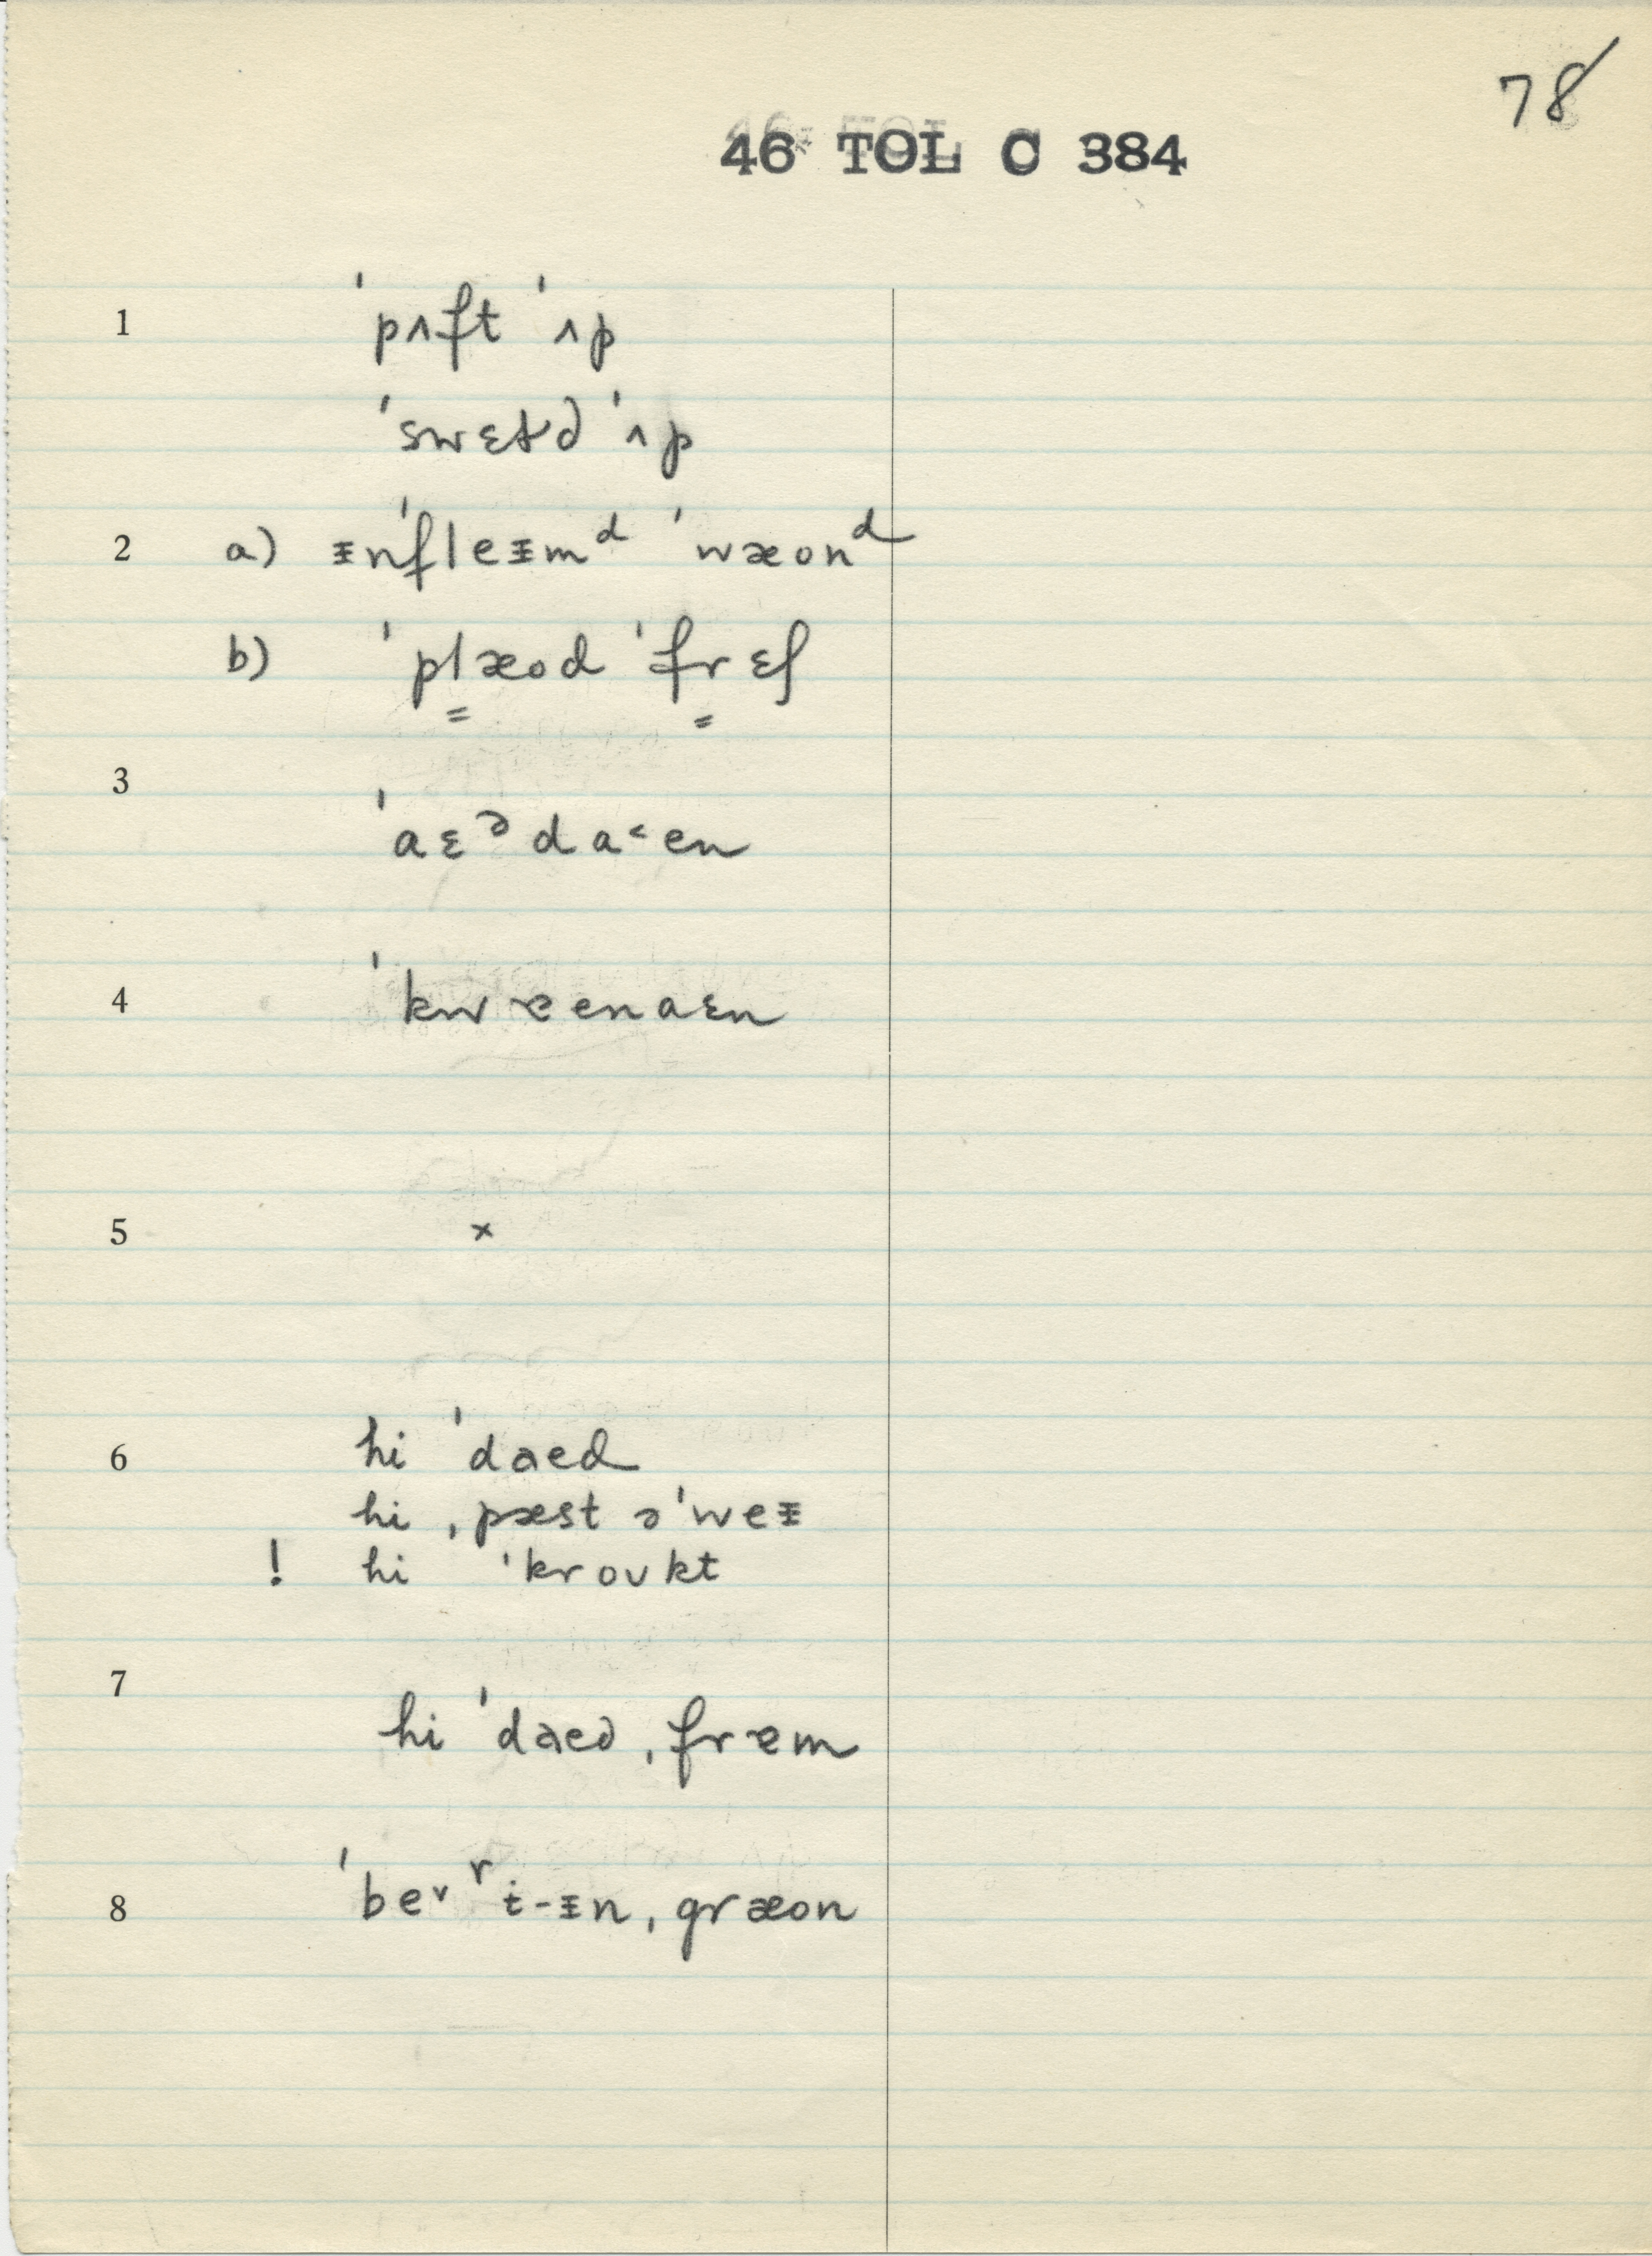 78
46 TOL C 384
1 ˈpʌft ˈʌp
ˈswɛtd ˈʌp
2 a) ᵻnˈfleᵻmᵈ ˈwæonᵈ
b) ˈplæod ˈfrɛʃ
3 ˈaɛᵊda˂en
4 ˈkwɐenaɛn
5 ×
6 hi ˈdaed
hi ˌpæst əˈweᵻ
! hi ˈkroʊkt
7 hi ˈdaed ˌfrɐm
8 ˈbe˅ʳi-ᵻn ˌgræon